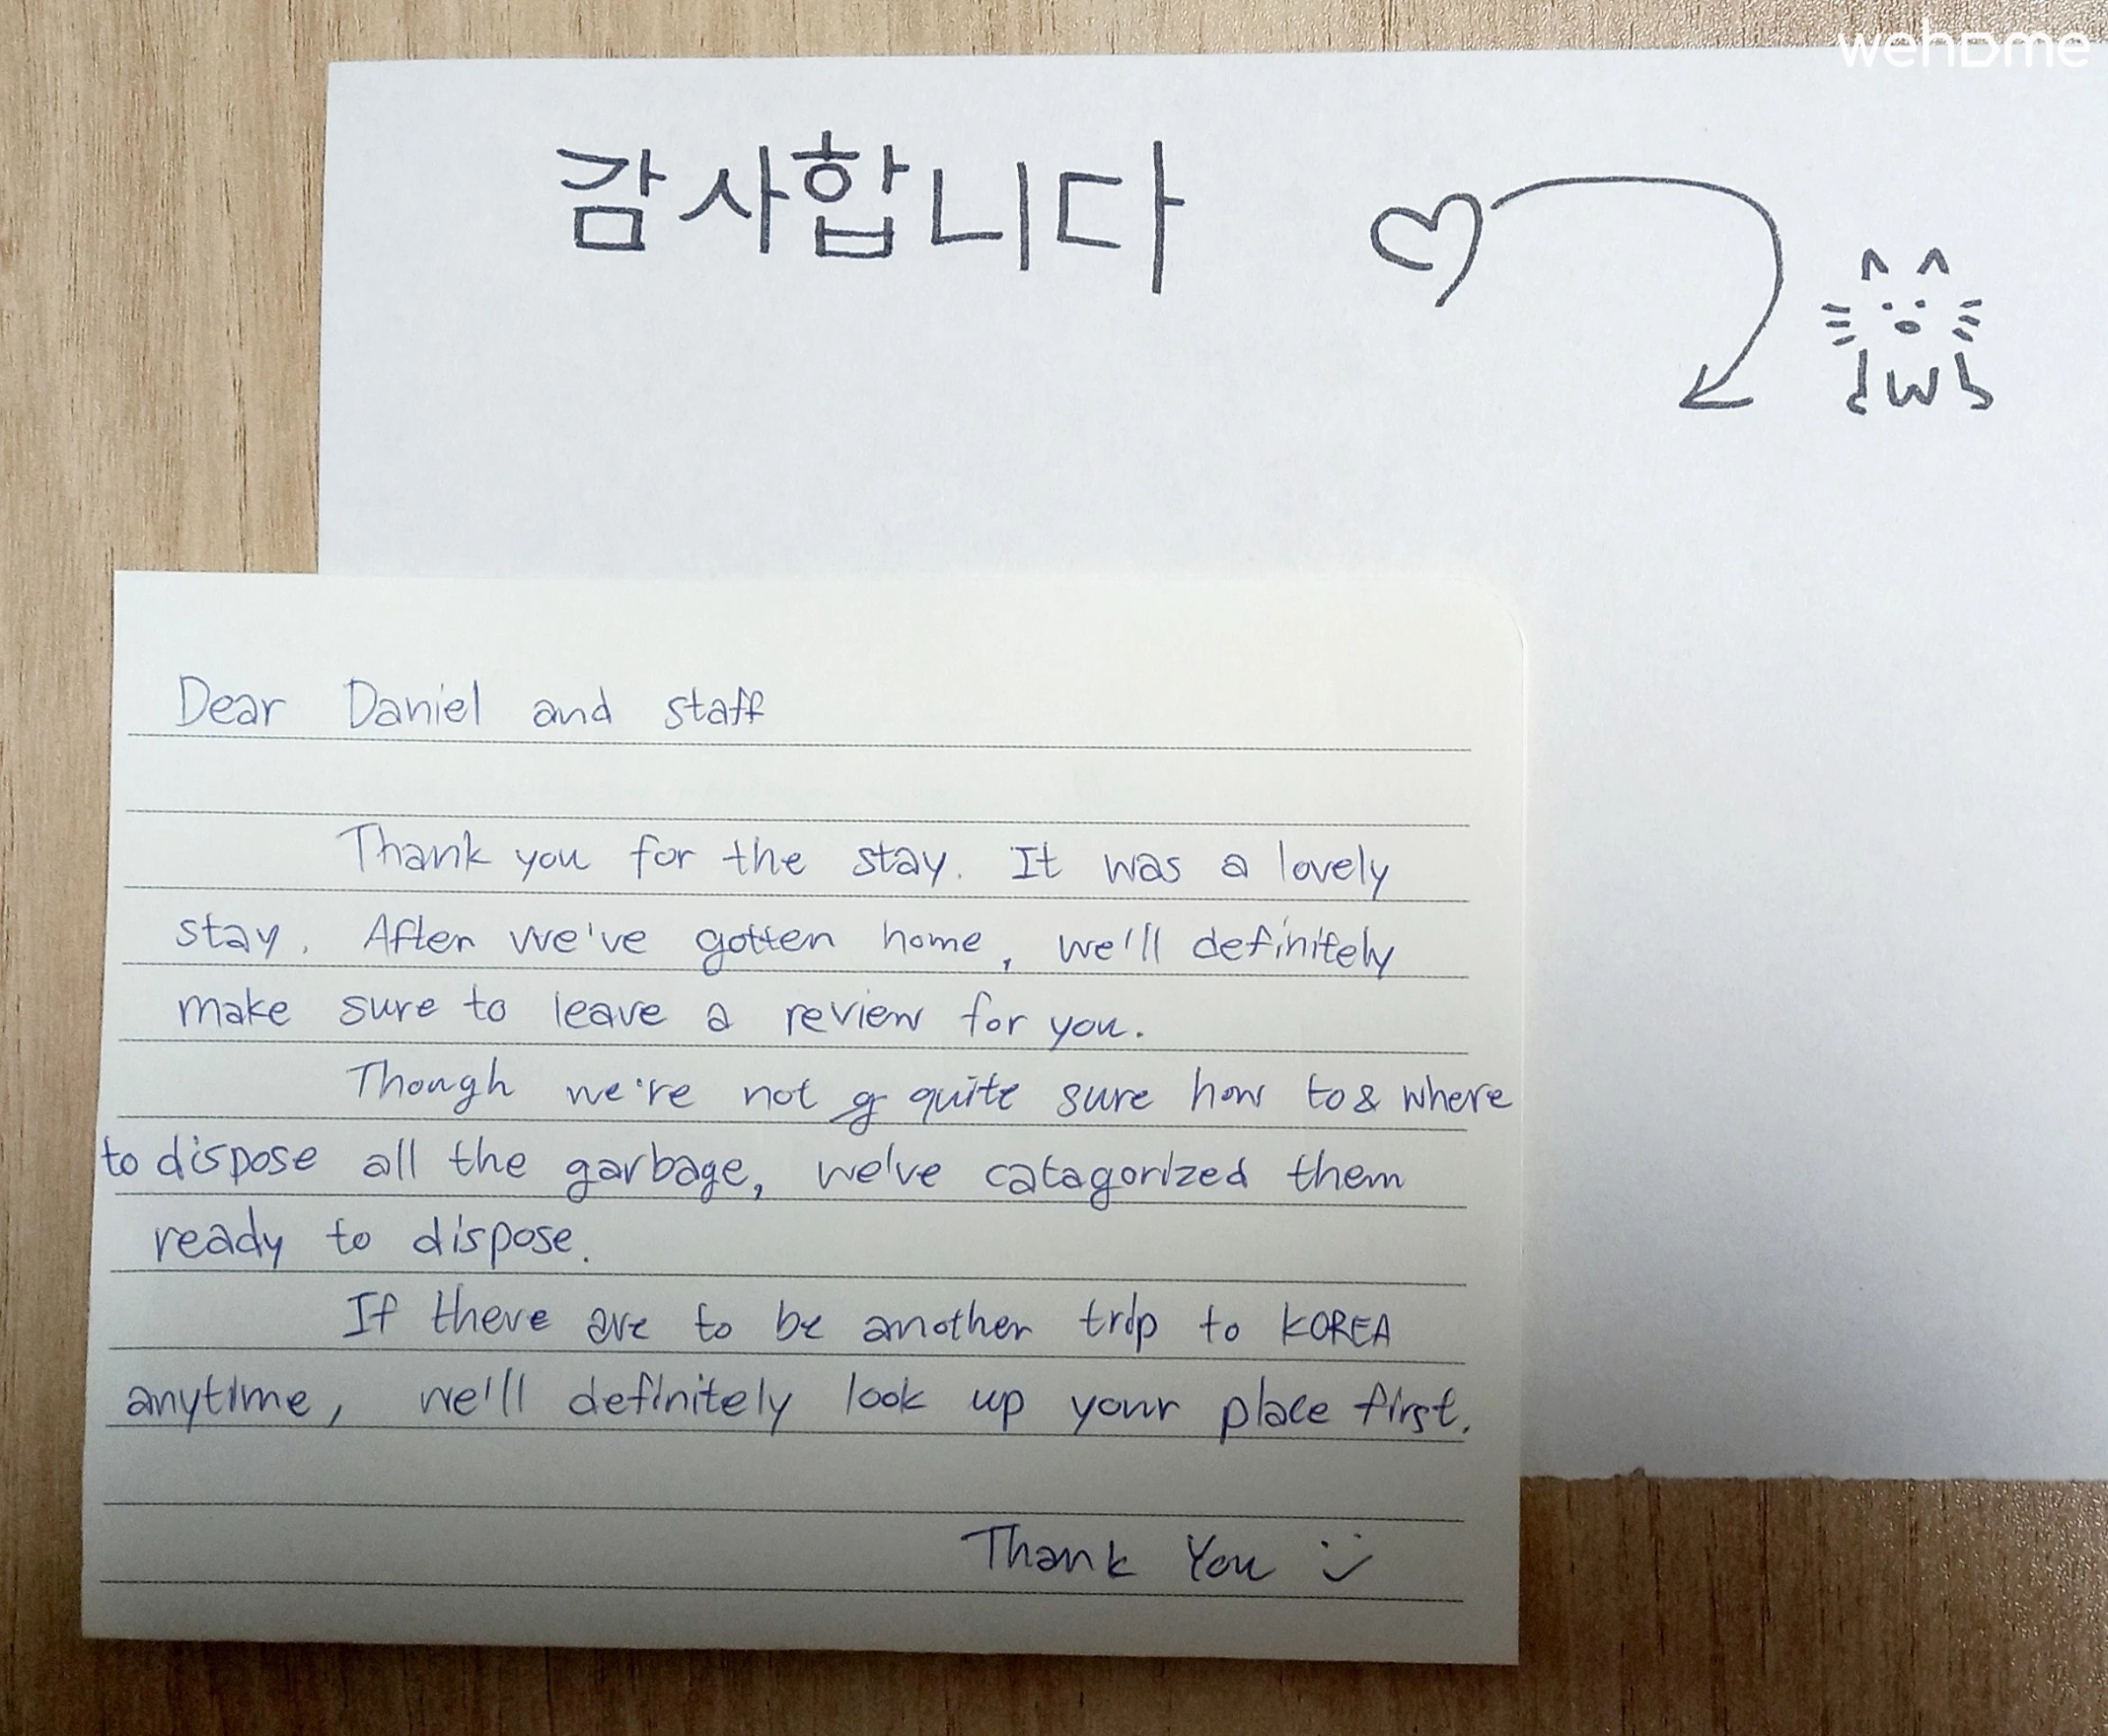 wehome
감사합니다
Dear Daniel and staff
Thank you for the stay. It was a lovely
stay. After we've gotten home, we'll definitely
make sure to leave a review for you.
Though we're not quite sure how to & where
to dispose all the garbage, we've catagorized them
ready to dispose.
If there are to be another trip to KOREA
anytime, we'll definitely look up your place first.
Thank You :)